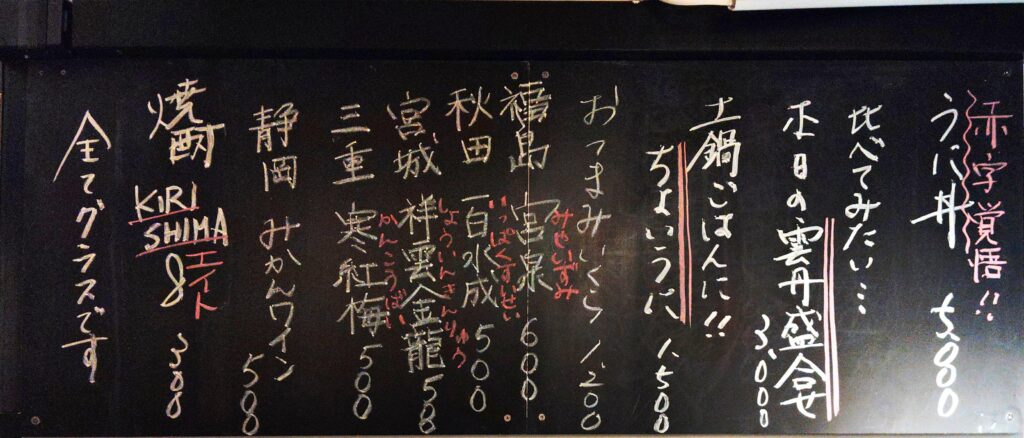 赤字覚悟!!
うに丼 5,000
比べてみたい…
本日の雲丹盛合せ 3,000
土鍋ごはんに!!
ちょいうに 1,500
おつまみいくら 1,200
みやいずみ
福島 宮泉 600
いっぱくすいせい
秋田 一白水成 500
しょううんきんりゅう
宮城 祥雲金龍 50
かんこうばい
三重 寒紅梅 500
静岡 みかんワイン 50
焼酎 KIRISHIMA 8 300
エイト
全てグラスです